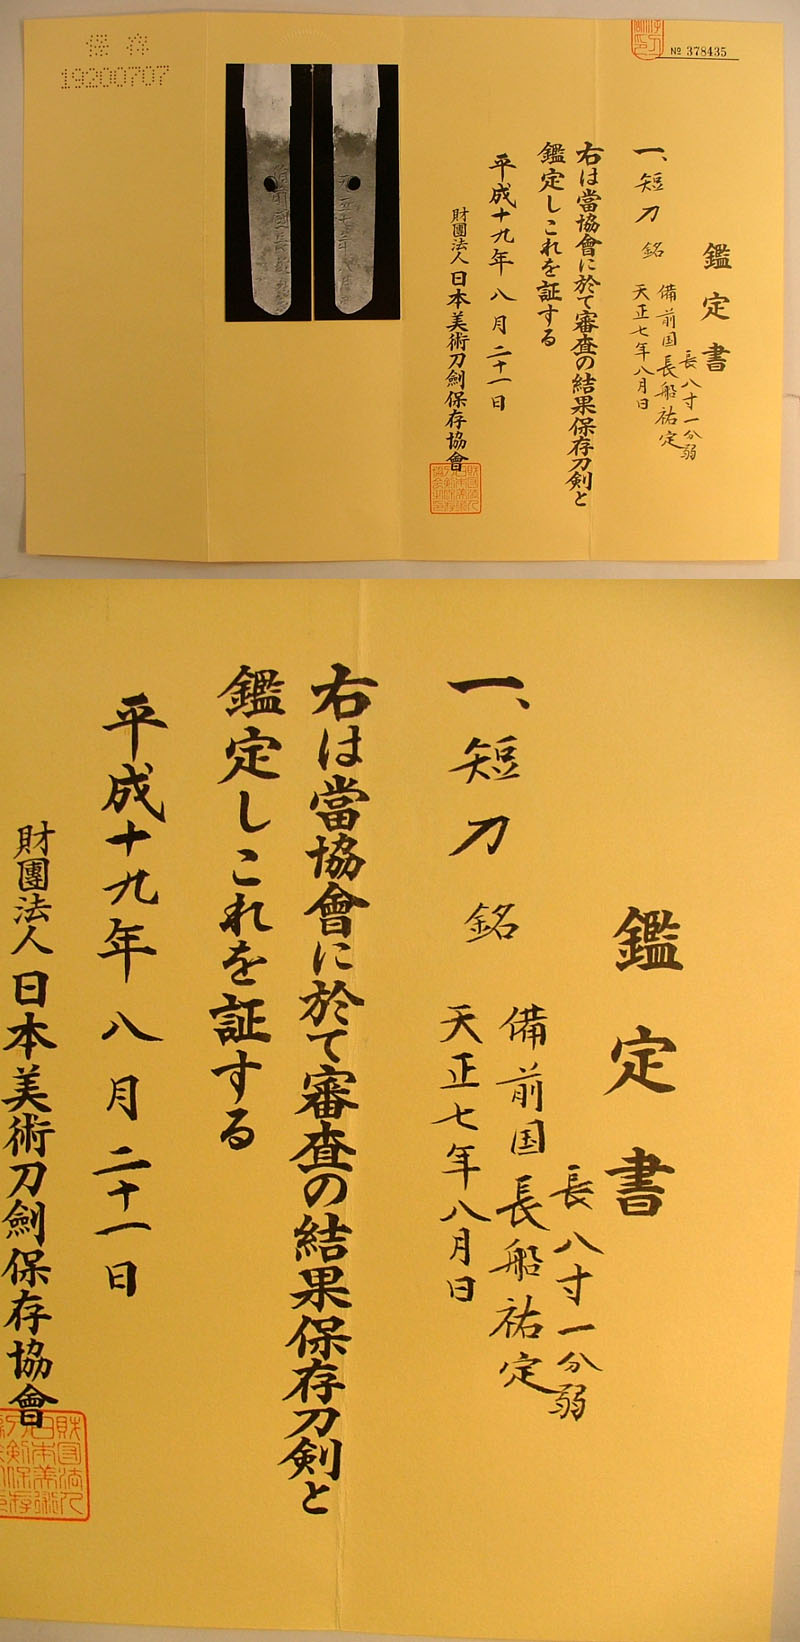 保存
19200707
№ 378435
鑑定書
長八寸一分弱
一、短刀 銘 備前国長船祐定
天正七年八月日
右は當協會に於て審査の結果保存刀剣と
鑑定しこれを証する
平成十九年八月二十一日
財團法人日本美術刀劍保存協會
鑑定書
長八寸一分弱
一、短刀 銘 備前国長船祐定
天正七年八月日
右は當協會に於て審査の結果保存刀剣と
鑑定しこれを証する
平成十九年八月二十一日
財團法人日本美術刀劍保存協會